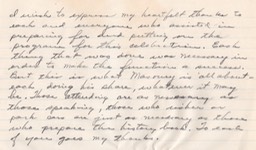 I wish to express my heartfelt thanks to
each and everyone who assisted in
preparing for and putting on the
program for this celebration. Each
thing that was done was necessary in
order to make the function a success.
But this is what Masonry is all about
each doing his share, whatever it may
be. Those attending are as necessary as
those speaking, those who usher or
park cars are just as necessary as those
who prepare this history book. To each
of you goes my thanks.